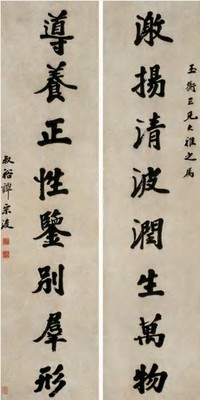 玉衡三兄大雅之屬
激揚清波潤生萬物
導養正性鑒別羣形
叔裕譚宗浚